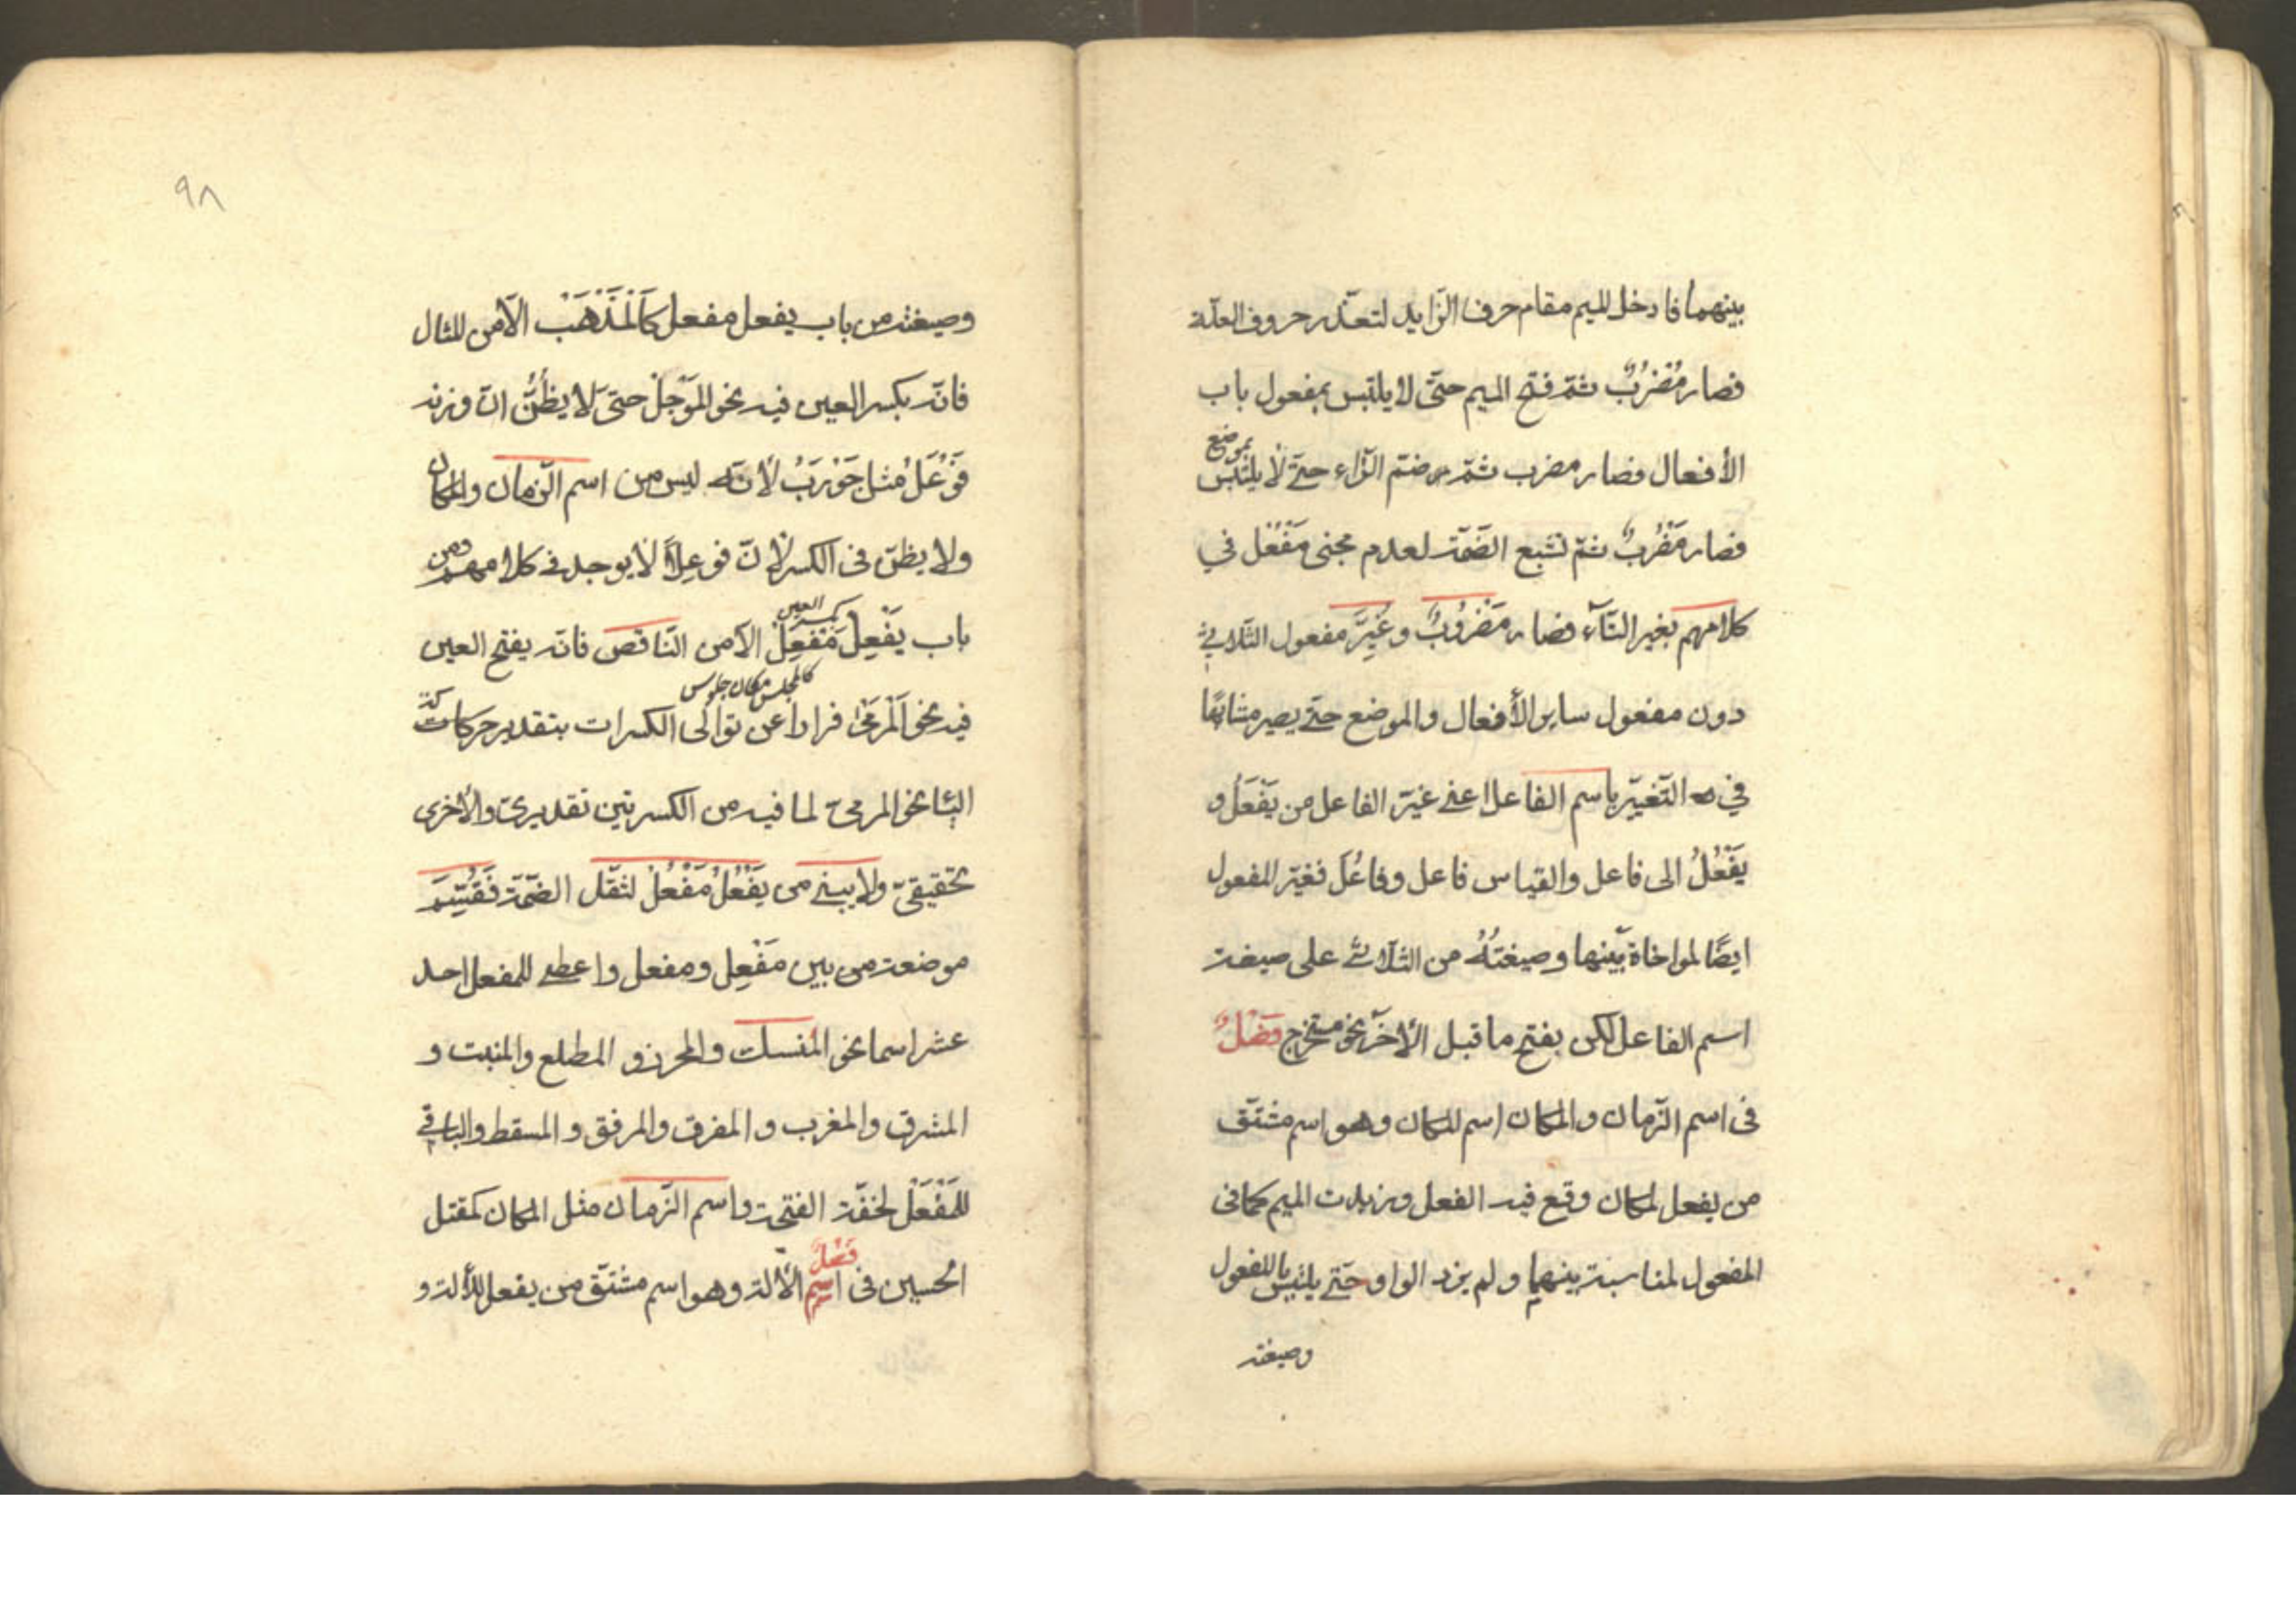 بينهما فادخل الميم مقام حرف الزّايد لتعذّر حروف العلّة
فصار مُضْرَبٌ ثمّ فتح الميم حتّى لا يلتبس بمفعول باب
الأفعال فصار مضرب ثمّ ضمّ الرّاء حتّى لا يلتبس بموضع
فصار مَضْرُبٌ ثمّ تشبع الضّمّة لعدم مجئ مَفْعُل في
كلامهم بغير التّآء فصار مَضْرُوبٌ وغُيِّرَ مفعول الثّلاثي
دون مفعول ساير الأفعال والموضع حتّى يصير مشابهًا
في التّغيير باسم الفاعل اعني غيّر الفاعل من يَفْعَلُ و
يَفْعُلُ الى فاعل والقياس فاعَل وفاعُل فغيّر المفعول
ايضًا لمواخاة بينها وصيغتُهُ من الثّلاثي على صيغة
اسم الفاعل لكن بفتح ما قبل الأخر نحو مستخرج فَصْلٌ
فى اسم الزّمان والمكان اسم المكان وهو اسم مشتقّ
من يفعل لمكان وقع فيه الفعل وزيدت الميم كما فى
المفعول لمناسبة بينهما ولم يزد الواو حتّى يلتبس بالمفعول
وصيغته
٩٨
وصيغته من باب يفعل مفعل كَالْمَذْهَبْ الّا من المثال
فانّه بكسر العين فيه نحو المَوْجِلْ حتى لا يظُنُّ انّ وزنه
فَوْعَلُ مثل جَوْرَبُ لأنّه ليس من اسم الزّمان والمكان
ولا يظنّ فى الكسر لأنّ فوعِلًا لا يوجد في كلامهم ومن
باب يَفْعِلُ مَفْعِلْ بكسر العين الّا من النّاقص فانّه يفتح العين
كالمجلس مكان جلوس
فيه نحو اَلْمَرْمَى فرارا عن توالى الكسرات بتقدير حركات
اليّا نحو المرمى لما فيه من الكسرتين تقديرىّ والأخرى
تحقيقىّ ولا يبنى من يَفْعُلُ مَفْعُلْ لثقل الضّمّة فَقُسِّمَ
موضعه من بين مَفْعِل ومفعل واعطى للمفعل احد
عشر اسما نحو المنسك والمجزر و المطلع والمنبت و
المشرق والمغرب و المفرق والمرفق و المسقط والباقي
للمَفْعَلْ لخفّة الفتحة واسم الزّمان مثل المكان كمقتل
الحسين فَصْلٌ فى اسم الألة وهو اسم مشتقّ من يفعل للألة و